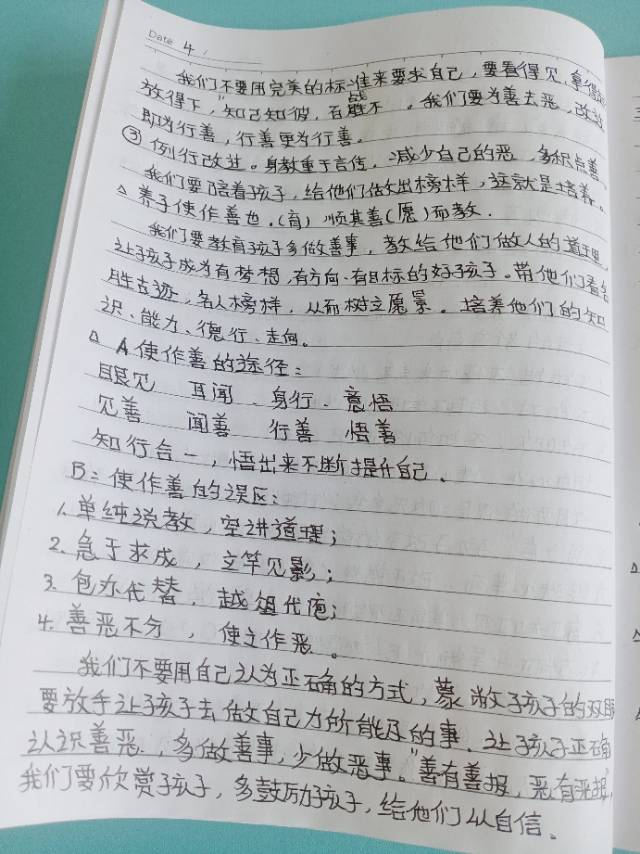 Date 4 /
我们不要用完美的标准来要求自己，要看得见，拿得
放得下，"知己知彼，百战不 。我们要为善去恶，改过
即为行善，行善更为行善。
③ 例行改过。身教重于言传，减少自己的恶，多积点善
我们要陪着孩子，给他们做出榜样，这就是培养。
△ 养子使作善也．（育）顺其善（愿）而教．
我们要教育孩子多做善事，教给他们做人的道理，
让孩子成为有梦想，有方向、有目标的好孩子。带他们看名
胜古迹，名人榜样，从而树立愿景。培养他们的知
识、能力、德行、走向。
△ A 使作善的途径：
眼见 耳闻、身行、意悟
见善 闻善 行善 悟善
知行合一，悟出来不断提升自己．
B：使作善的误区：
1. 单纯说教，空讲道理；
2. 急于求成，立竿见影；
3. 包办代替，越俎代庖；
4. 善恶不分，使之作恶。
我们不要用自己认为正确的方式，蒙敝了孩子的双眼
要放手让孩子去做自己力所能及的事．让孩子正确
认识善恶．，多做善事，少做恶事。"善有善报，恶有恶报"
我们要欣赏孩子，多鼓励孩子，给他们以自信。